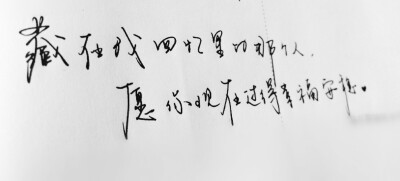 藏在我回忆里的那个人,
愿你现在过得幸福安稳。